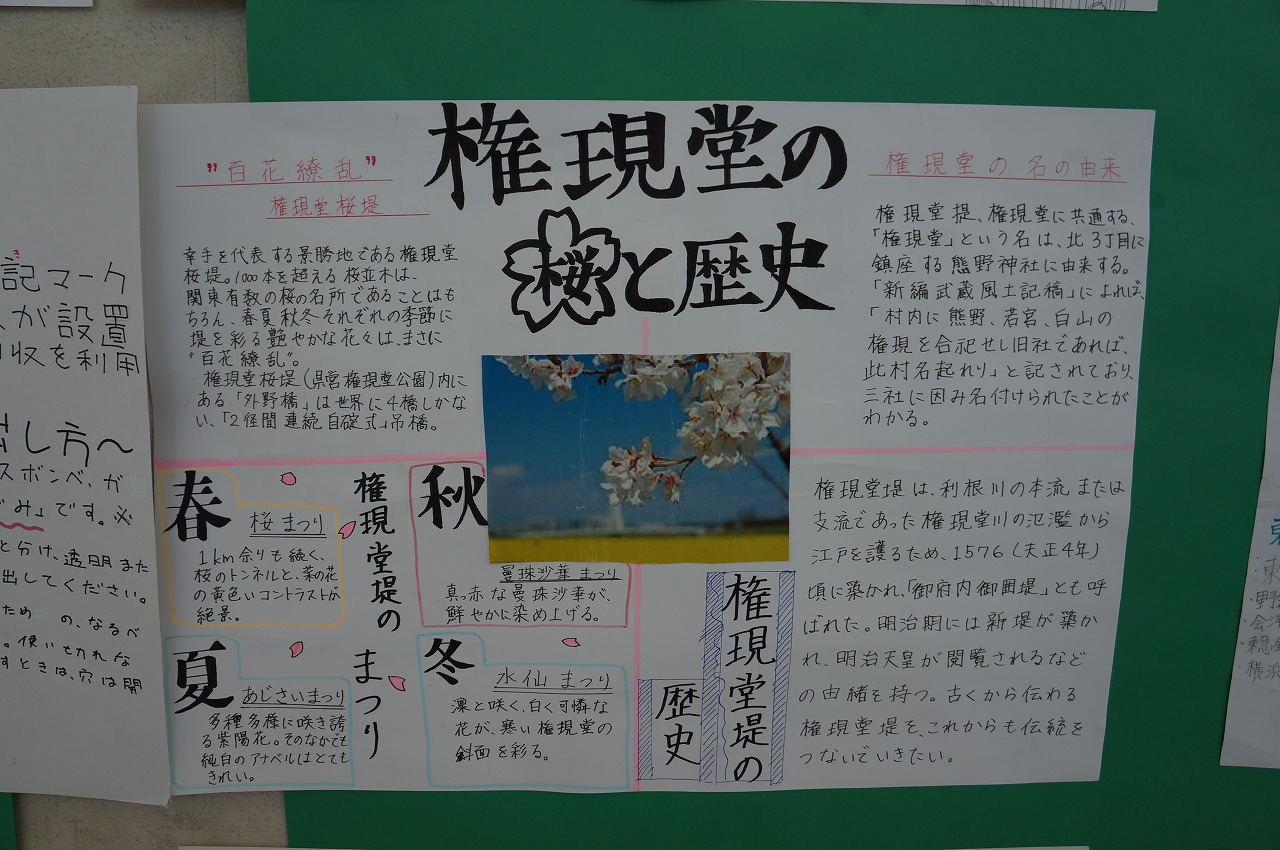 権現堂の
桜と歴史
"百花繚乱"
権現堂桜堤
幸手を代表する景勝地である権現堂
桜堤。1000本を超える桜並木は、
関東有数の桜の名所であることはも
ちろん、春夏秋冬それぞれの季節に
堤を彩る艶やかな花々は、まさに
"百花繚乱"。
権現堂桜堤(県営権現堂公園)内に
ある「外野橋」は世界に4橋しかな
い、「2径間連続自碇式」吊橋。
権現堂の名の由来
権現堂堤、権現堂に共通する、
「権現堂」という名は、北3丁目に
鎮座する熊野神社に由来する。
「新編武蔵風土記稿」によれば、
「村内に熊野、若宮、白山の
権現を合祀せし旧社であれば、
此村名起れり」と記されており、
三社に因み名付けられたことが
わかる。
権現堂堤の
まつり
春
桜まつり
1km余りも続く、
桜のトンネルと、菜の花
の黄色いコントラストが
絶景。
夏
あじさいまつり
多種多様に咲き誇
る紫陽花。そのなかでも
純白のアナベルはとても
きれい。
秋
曼珠沙華まつり
真っ赤な曼珠沙華が、
鮮やかに染め上げる。
冬
水仙まつり
凛と咲く、白く可憐な
花が、寒い権現堂の
斜面を彩る。
権現堂堤の
歴史
権現堂堤は、利根川の本流または
支流であった権現堂川の氾濫から
江戸を護るため、1576(天正4年)
頃に築かれ、「御府内御囲堤」とも呼
ばれた。明治期には新堤が築か
れ、明治天皇が閲覧されるなど
の由緒を持つ。古くから伝わる
権現堂堤を、これからも伝統を
つないでいきたい。
記マーク
が設置
収を利用
出し方へ
スボンベ、ガ
み」です。必
と分け、透明また
出してください。
ため の、なるべ
。使い切れな
すときは、穴は開